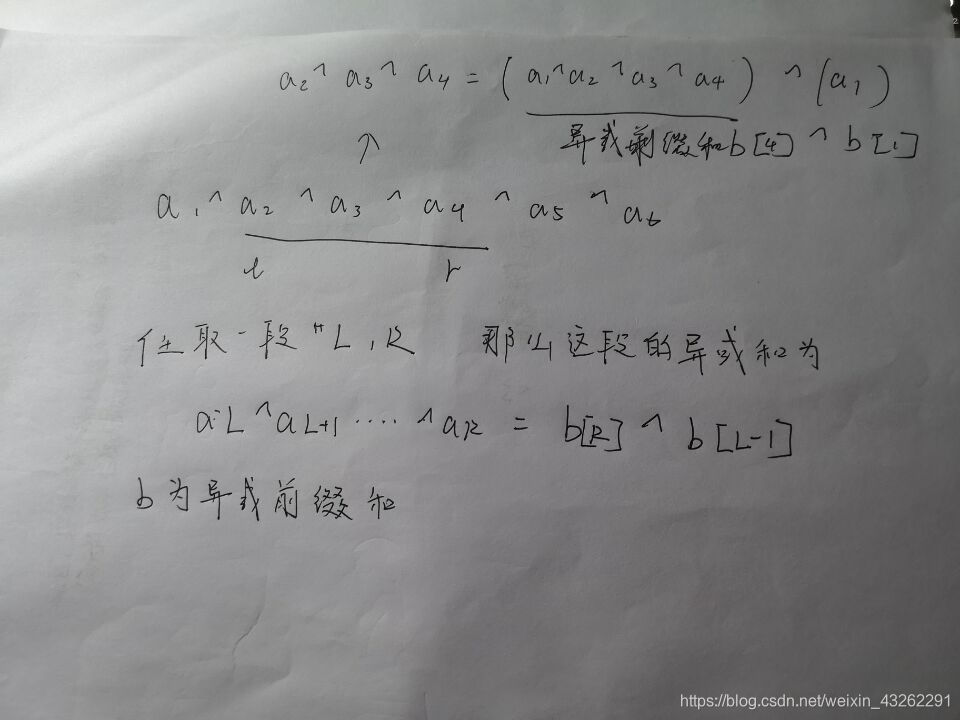 a₂ ^ a₃ ^ a₄ = (a₁^a₂^a₃^a₄) ^ (a₁)
异或前缀和b[4] ^ b[1]
↑
a₁ ^ a₂ ^ a₃ ^ a₄ ^ a₅ ^ a₆
l r
任取一段 L,R 那么这段的异或和为
aL ^ aL+1 .... ^ aR = b[R] ^ b[L-1]
b为异或前缀和
https://blog.csdn.net/weixin_43262291